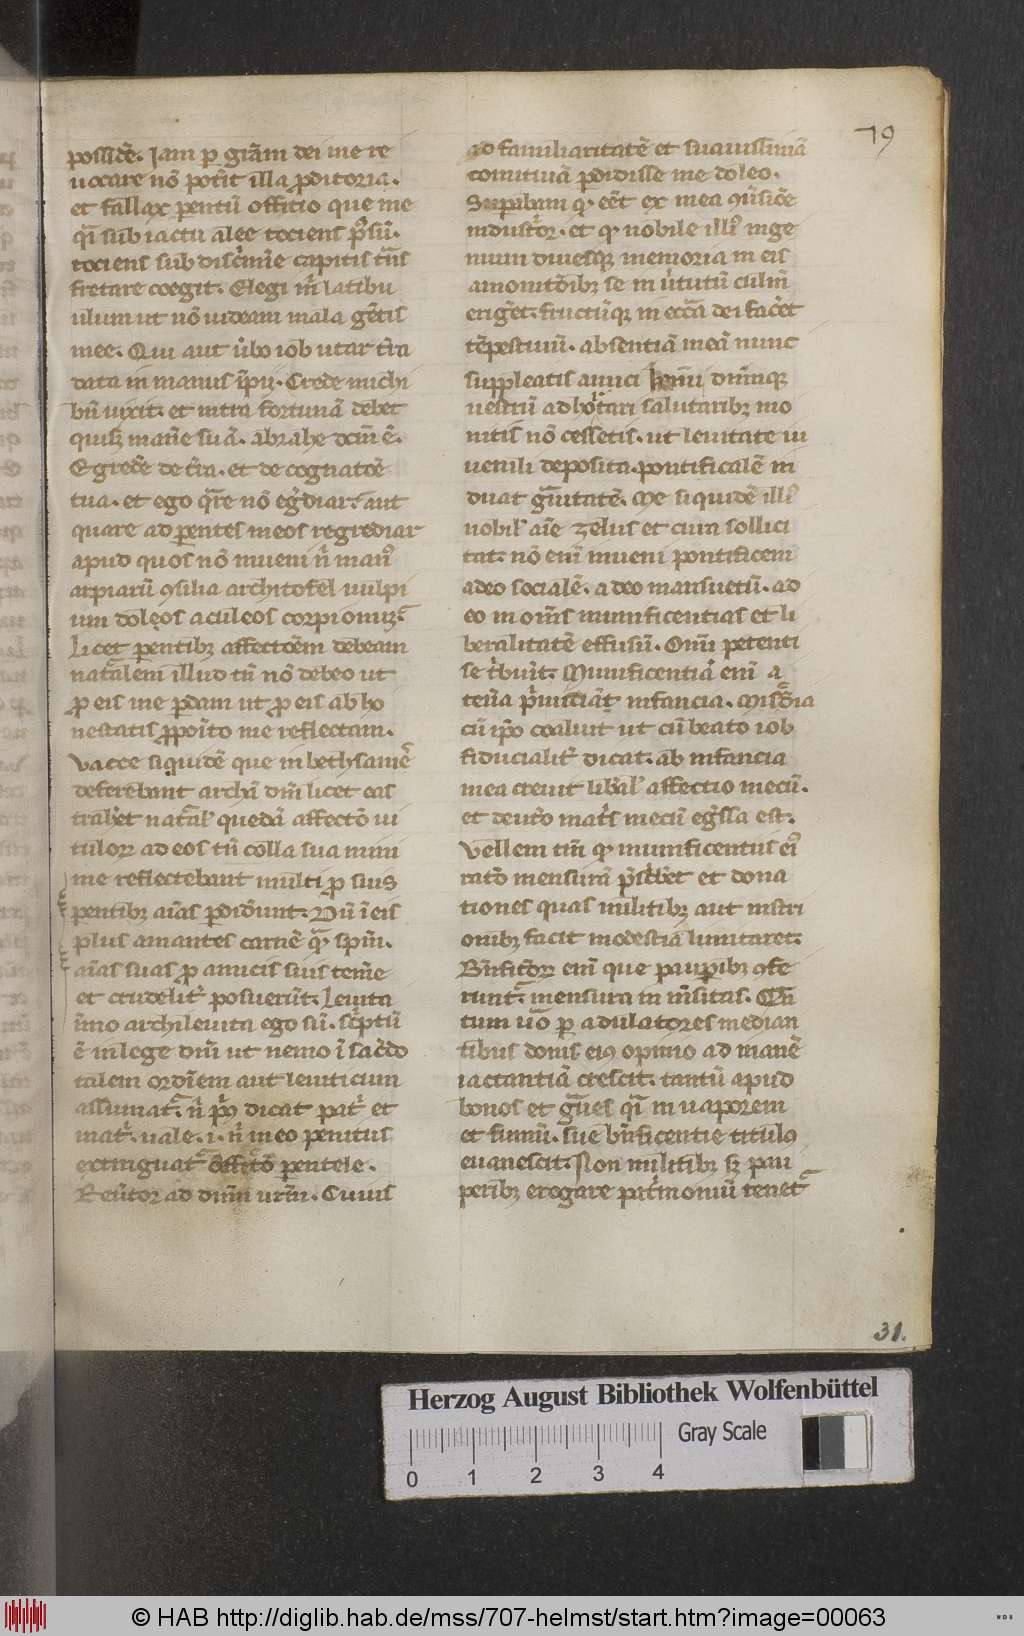 79
possidẽ. Iam p gr̃am dei me re
uocare nõ potit illa p̱ditoria.
et fallax pentũ affectio que me
q̃i sub iactu alee tociens p̃sũ.
tociens sub discĩmĩe capitis tñs
fretare coegit. Elegi m̃ latibu
ulum ut nõ uideam mala gẽtis
mee. Qui aut ũbo iob utar tr̃a
data in manus ĩpii. Crede michi
bñ uixit. et intra fortunã debet
quisq̃ manẽ suã. abrahe dcm̃ ẽ.
Egredẽ de tr̃a. et de cognatõe
tua. et ego q̃re nõ eg̃diar. aut
quare ad pentes meos regrediar
apud quos nõ inueni n̄ man9
arpiarũ ↄsilia architofel uulpi
um dolẹos aculeos corpionuȝ.
Licet pentibȝ affectõem debeam
nat̃alem illud tñ nõ debeo ut
p̱ eis me pdam ut p̱ eis ab ho
nestatis p̱poĩto me reflectam.
Vacce siquidẽ que in bethsamẽ
deferebant archã dñi licet eas
trahẽt nat̃al' quedã affectõ ui
tuloꝝ ad eos tñ colla sua mini
me reflectebant multi p̱ suis
pentibȝ aĩas pdidẽunt. Dũ ĩ eis
plus amantes carnẽ q̃ sp̃m.
aĩas suas p̱ amicis suis temẽ
et crudelit̃ posuerũt. Leuita
ĩmo archileuita ego sũ. sc̃ptũ
ẽ in lege dñi ut nemo ĩ sac̃do
talem ordĩem aut leuiticum
assumat̃. n̄ p̃9 dicat pat̃ et
mat̃. uale. i. n̄ meo penitus
extinguat̃ affc̃õ pentele.
Reũtor ad dñm ur̃m. Cuius
ad familiaritatẽ et suauissimã
comitiuã pdidisse me doleo.
Supabam q̱ eẽt ex mea ↄũsacõe
industor̃. et q̱ nobile ill9 inge
nium diuesq̱ memoria in eis
amonitõibȝ se in ũtutũ culm̃
erigẽt. fructũq̱ in ecc̃a dei facẽt
tẽpestiuũ. absentiã meã nunc
suppleatis amici dñmq̱
uestrũ adhortari salutaribȝ mo
nitis nõ cessetis. ut leuitate iu
uenili deposita. pontificalẽ in
duat g̃uitatẽ. Me siquidẽ ill9
nobil' aĩe zelus et cura sollici
tat. nõ enĩ inueni pontificem
adeo socialẽ. adeo mansuetũ. ad
eo in om̃s munificentias et li
beralitatẽ effusũ. Omĩ petenti
se t̃buit. Munificentiã enĩ a
tenã p̃muciãt infancia. Misc̃dia
cũ ip̃o coaluit ut cũ beato iob
fiducialit̃ dicat. ab infancia
mea creuit lib̃al' affectio mecũ.
et deut̃o mat̃s mecũ eg̃ssa est.
Vellem tm̃ q̱ munificentus ei9
ratõ mensurã p̃scbẽt et dona
tiones quas militibȝ aut nistri
onibȝ facit modestia limitaret.
Bñficõꝝ enĩ que paupibȝ ↄfe
runt̃ mensura in m̃sitas. Quã
tum ũo p adulatores median
tibus donis ei9 opinio ad manẽ
iactantiã crescit. tantũ apud
bonos et g̃ues q̃i in uaporem
et fumũ. sue bñficentie titul9
euanescit. Non militibȝ sȝ pau
peribȝ erogare pat̃moniũ tenet̃
31.
Herzog August Bibliothek Wolfenbüttel
Gray Scale
0 1 2 3 4
© HAB http://diglib.hab.de/mss/707-helmst/start.htm?image=00063